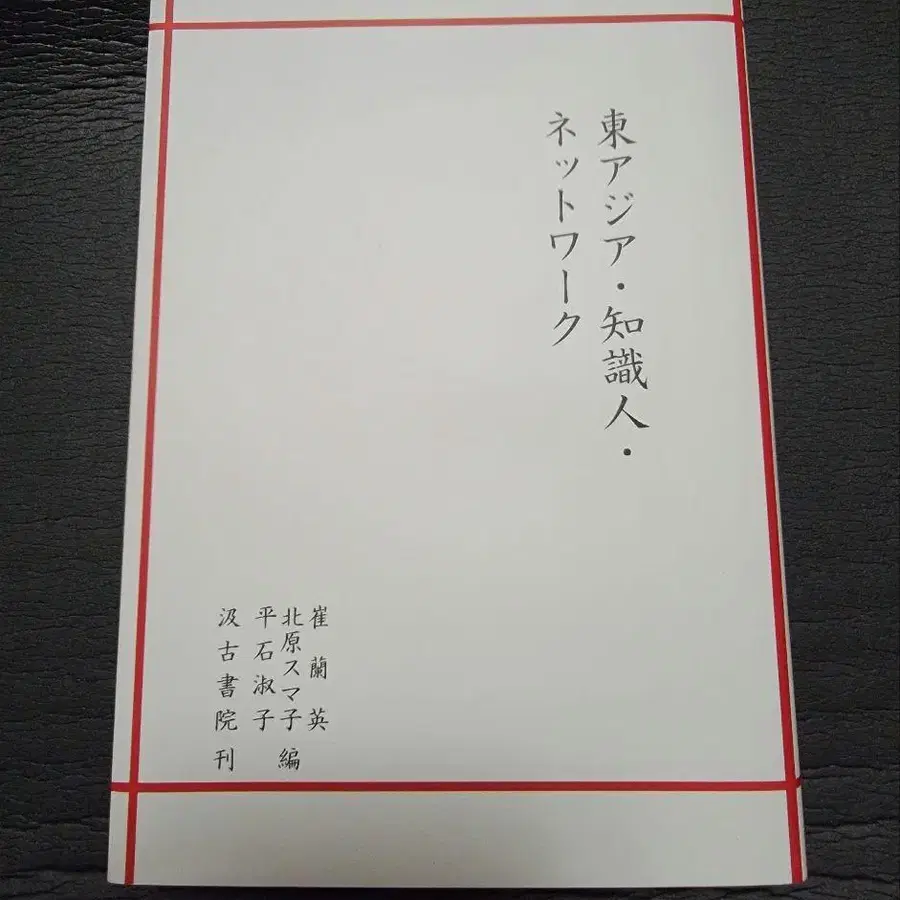 東アジア・知識人・
ネットワーク
崔蘭英
北原スマ子編
平石淑子
汲古書院刊